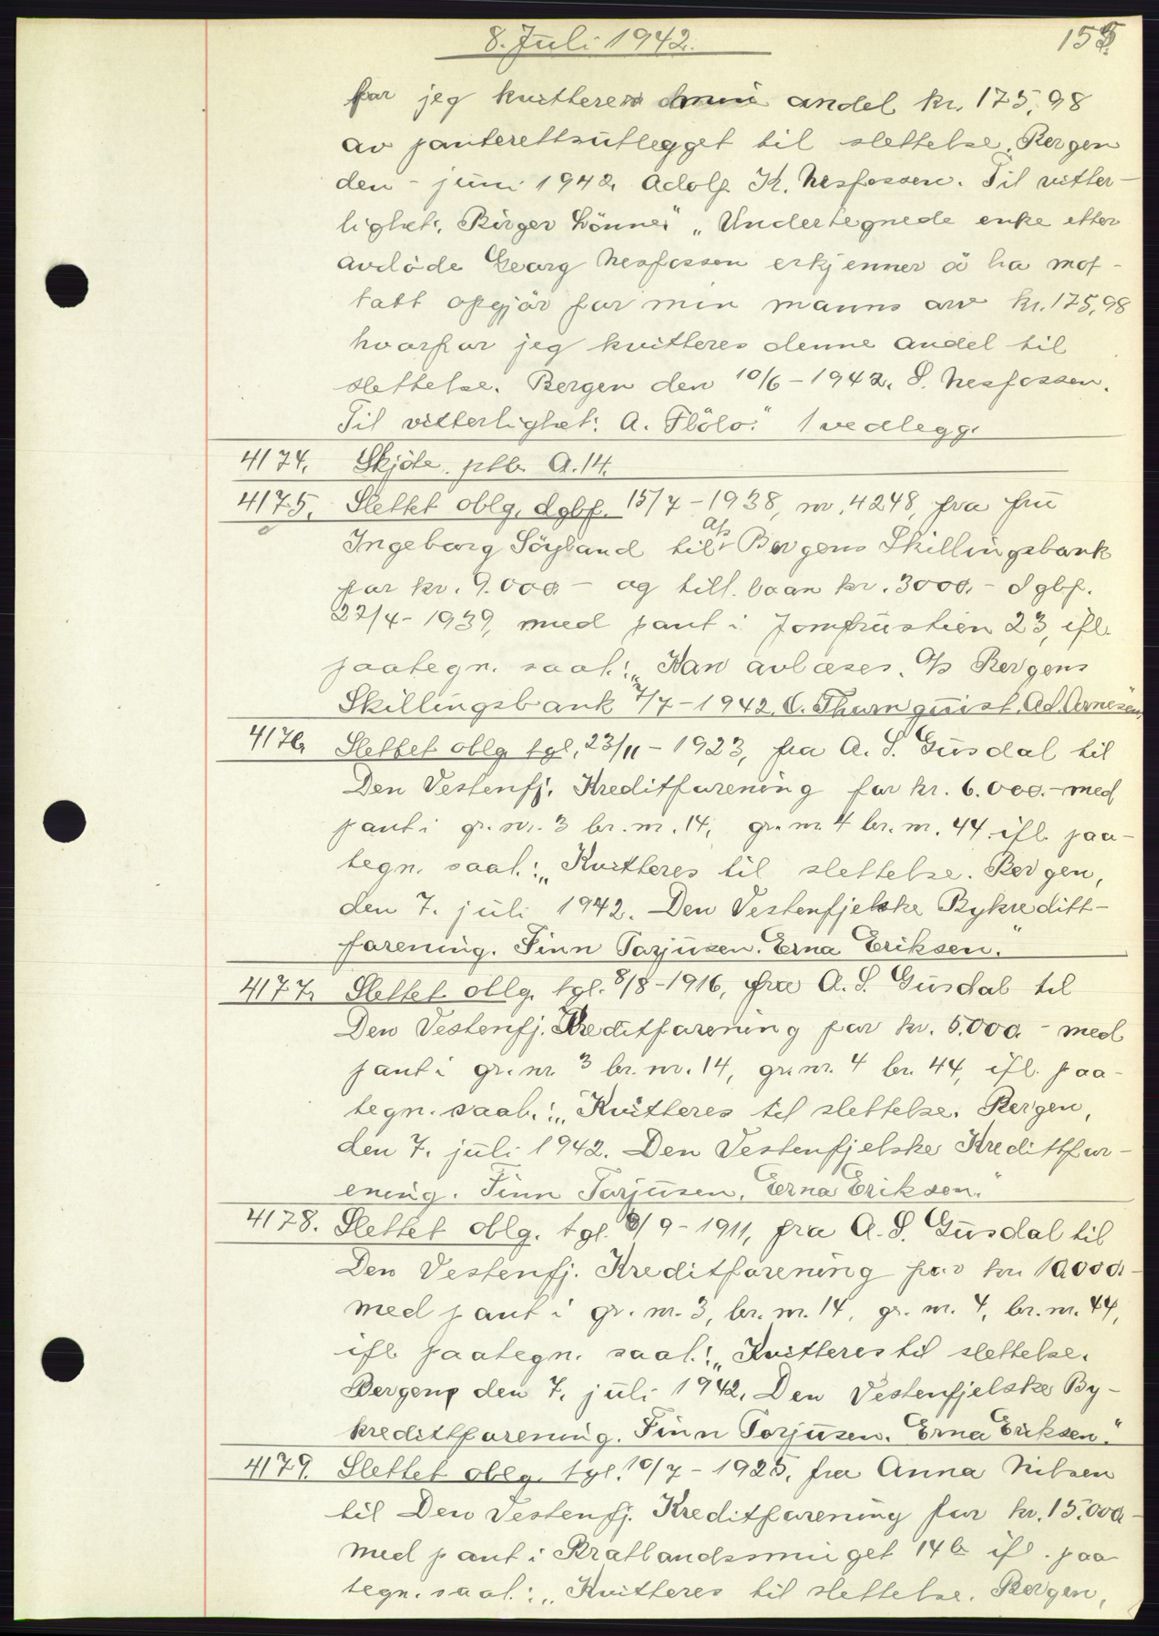 8. Juli 1942.
155.
for jeg kvitterer min andel kr. 175,98
av panterettsutlegget til slettelse. Bergen
den - juni 1942. Adolf K. Nesfossen. Til vitter-
lighet: Birger Lönne." "Undertegnede enke etter
avdöde Georg Nesfossen erkjenner å ha mot-
tatt opgjör for min manns arv kr. 175,98
hvorfor jeg kvitteres denne andel til
slettelse. Bergen den 10/6-1942. S. Nesfossen.
Til vitterlighet: A. Flölo." 1 vedlegg.
4174. Skjöte. ptb. A.14.
4175. Slettet oblg. dgbf. 15/7-1938, nr. 4248, fra fru
Ingeborg Söyland til A/s Bergens Skillingsbank
for kr. 9.000 - og till. laan kr. 3000.- dgbf.
22/4-1939, med pant i Jomfrustien 23, ifl.
paategn. saal.: "Kan avlæses. A/s Bergens
Skillingsbank 7/7-1942. C. Thurnquist. Ad. Arnesen"
4176. Slettet oblg. tgl. 23/11-1923, fra A. S. Gusdal til
Den Vestenfj. Kreditforening for kr. 6.000.- med
pant i gr. nr. 3 br. nr. 14, gr. nr. 4 br. nr. 44 ifl. paa-
tegn. saal.: "Kvitteres til slettelse. Bergen,
den 7. juli 1942. Den Vestenfjelske Bykreditt-
forening. Finn Torjusen. Erna Eriksen."
4177. Slettet oblg. tgl. 8/8-1916, fra A. S. Gusdal til
Den Vestenfj. Kreditforening for kr. 5.000.- med
pant i gr. nr. 3 br. nr. 14, gr. nr. 4 br. 44, ifl. paa-
tegn. saal.: "Kvitteres til slettelse. Bergen,
den 7. juli 1942. Den Vestenfjelske Kredittfor-
ening. Finn Torjusen. Erna Eriksen."
4178. Slettet oblg. tgl. 8/9-1911, fra A. S. Gusdal til
Den Vestenfj. Kreditforening for kr. 10.000.-
med pant i gr. nr. 3, br. nr. 14, gr. nr. 4, br. nr. 44,
ifl. paategn. saal.: "Kvitteres til slettelse.
Bergen, den 7. juli 1942. Den Vestenfjelske By-
kredittforening. Finn Torjusen. Erna Eriksen."
4179. Slettet oblg. tgl. 10/7-1925, fra Anna Nilsen
til Den Vestenfj. Kreditforening for kr. 15.000.-
med pant i Kratlandssmuget 14b ifl. paa
tegn. saal.: "Kvitteres til slettelse. Bergen,